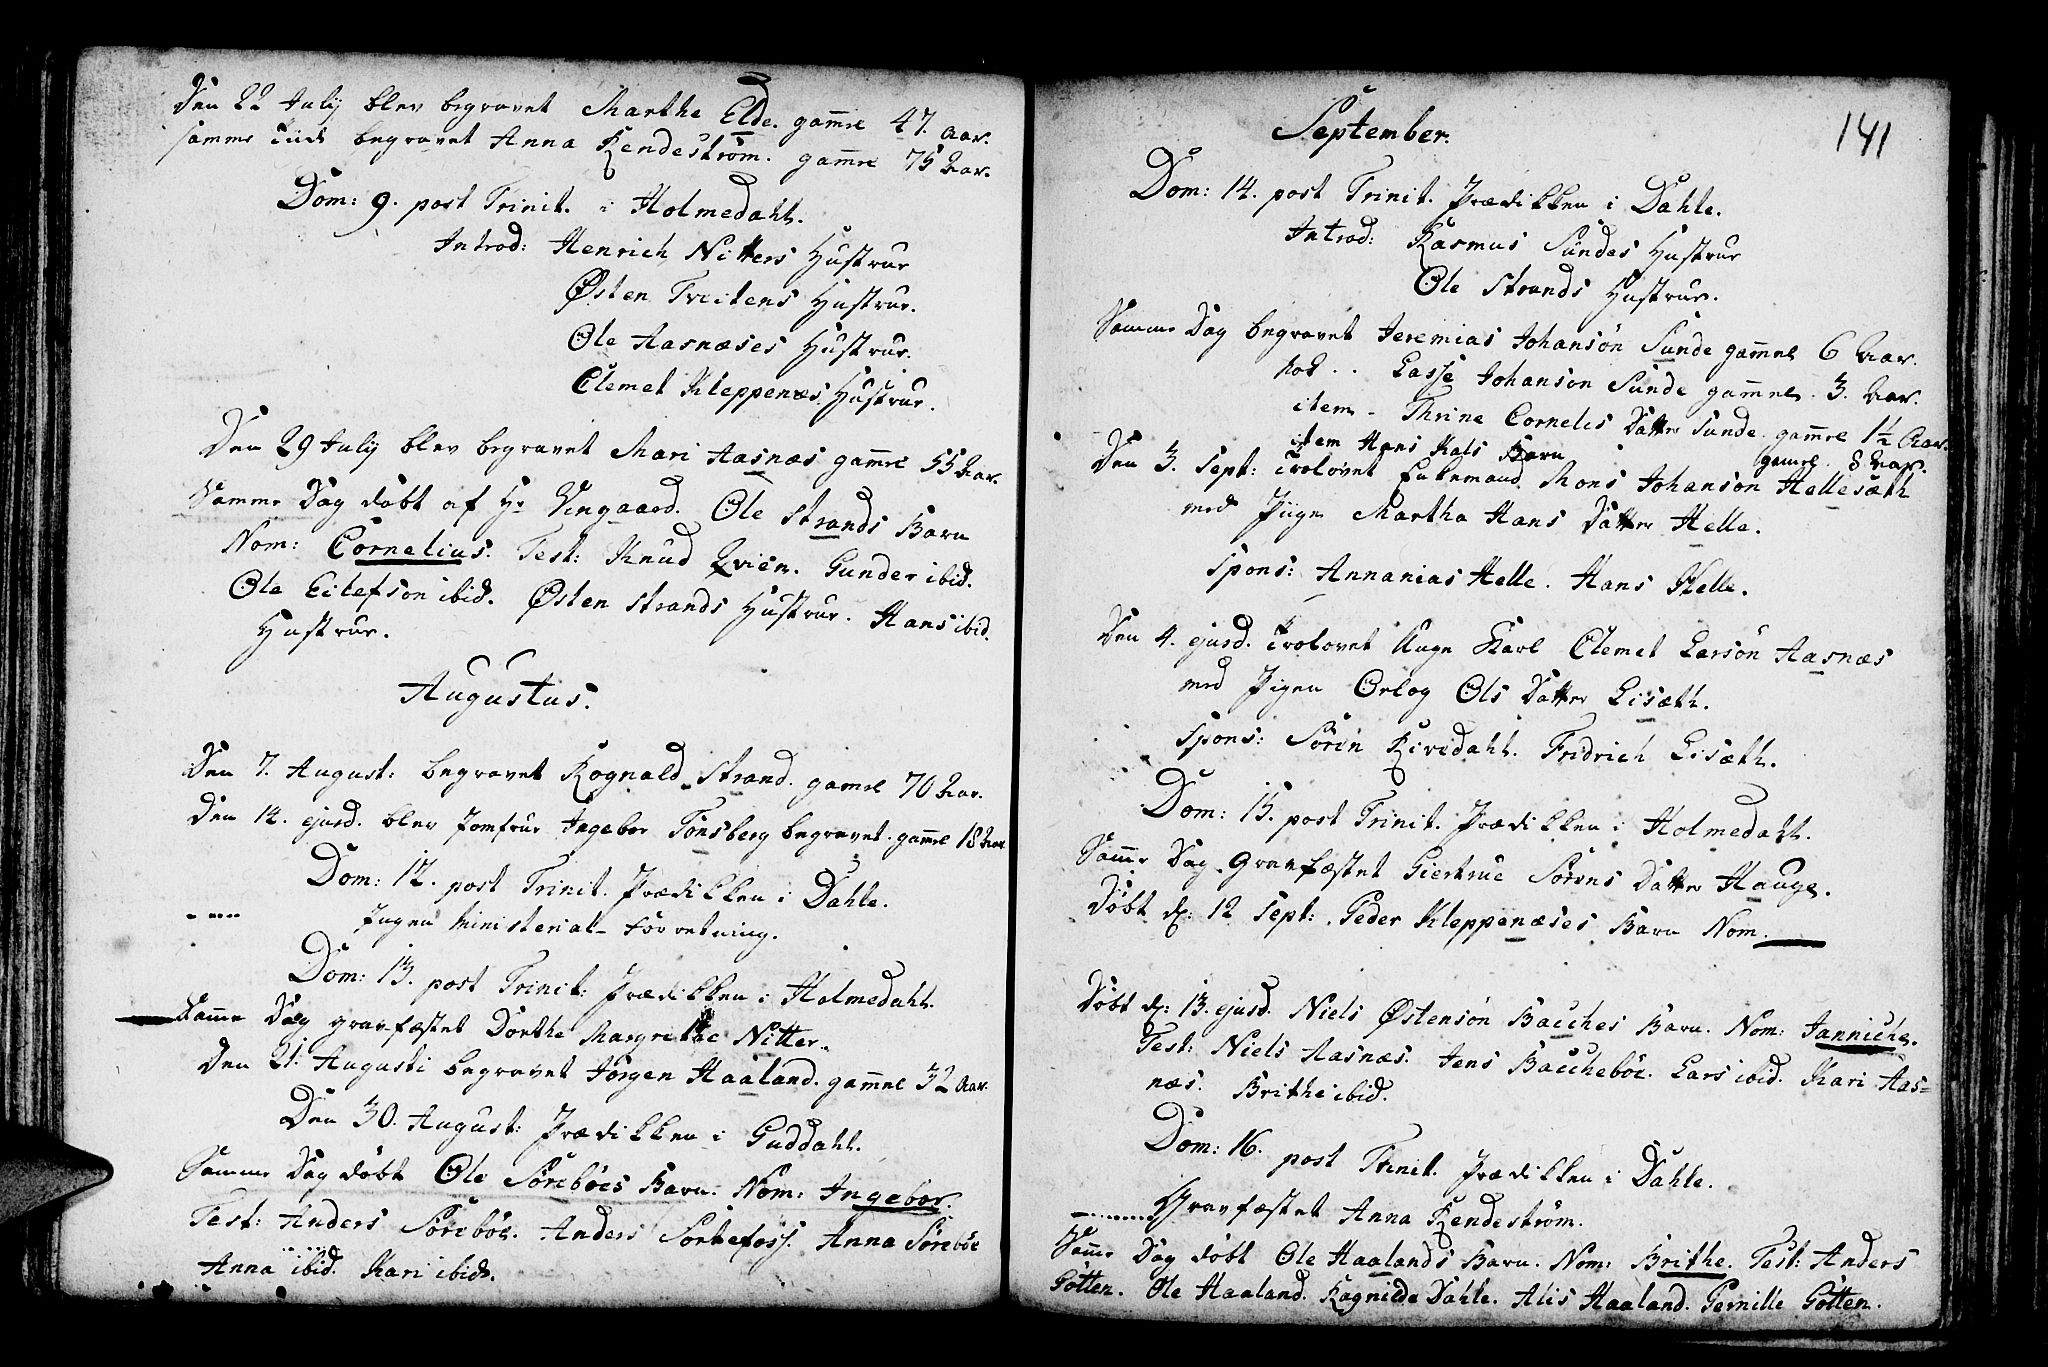 Den 22 July blev begravet Marthe Elde. gamel 47. Aar.
samme Tiid begravet Anna Rendeström. gamel 75 Aar.
Dom: 9. post Trinit. i Holmedahl.
Introd: Henrich Nitters Hustrue
Østen Tveitens Hustrue.
Ole Aasnæses Hustrue.
Clemet Kleppenæs Hustrue.
Den 29 July blev begravet Mari Aasnæs gamel 55 Aar.
Samme Dag döbt af Hr Vingaard. Ole Strands Barn
Nom: Cornelius. Test: Knud Qvien. Gunder ibid.
Ole Eilefsön ibid. Østen Strands Hustrue. Hans ibid.
Hustrue.
Augustus.
Den 7. August: begravet Rognald Strand. gamel 70 Aar.
Den 14. ejusd. blev Jomfrue Ingebor Tönsberg begravet. gamel 18 Aar
Dom: 12. post Trinit. Prædikken i Dahle.
Ingen Ministerial-Forretning.
Dom: 13. post Trinit: Prædikken i Holmedahl.
Samme Dag gravfæstet Dorthe Margrethe Nitter.
Den 21. Augusti begravet Jörgen Haaland. gammel 32 Aar.
Den 30. August: Prædikken i Guddahl.
Samme Dag döbt Ole Söreböes Barn. Nom: Ingebor.
Test: Anders Söreböe. Anders Sortefoss. Anna Söreböe
Anna ibid. Kari ibid.
141
September.
Dom: 14. post Trinit. Prædikken i Dahle.
Introd: Rasmus Sundes Hustrue
Ole Strands Hustrue.
Samme Dag begravet Jeremias Johansön Sunde gammel 6 Aar.
Lasse Johansön Sunde gammel 3. Aar.
item - Thrine Cornelis Datter Sunde gamel 1½ Aar.
item Hans Kals Barn gamel. 8 Aar.
Den 3. Sept: Trolovet Enkemand Mons Johansön Hellesæth
med Piige Martha Hans Datter Helle.
Spons: Annanias Helle. Hans Helle.
Den 4. ejusd. Trolovet Unge Karl Clemet Larsön Aasnæs
med Pigen Orlog Ols Datter Lisæth.
Spons: Sörin Rivedahl. Fridrich Lisæth.
Dom: 15. post Trinit. Prædikken i Holmedahl.
Samme Dag Gravfæstet Giertrue Sörens Datter Hauge.
Döbt d: 12 Sept: Peder Kleppenæses Barn Nom.
Döbt d: 13. ejusd. Niels Østensön Bacches Barn. Nom: Janniche.
Test: Niels Aasnæs. Jens Baccheböe. Lars ibid. Kari Aas-
næs. Brithe ibid.
Dom: 16. post Trinit. Prædikken i Dahle.
Gravfæstet Anna Rendeström.
Samme Dag döbt Ole Haalands Barn. Nom: Brithe. Test: Anders
Götten. Ole Haaland. Ragnilde Dahle. Alis Haaland. Pernille Götten.